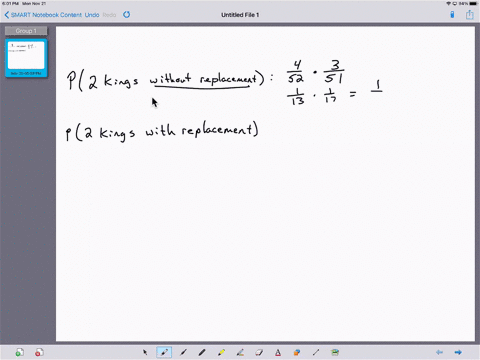 5:01 PM Mon Nov 21
SMART Notebook Content Undo Redo
Untitled File 1
Group 1
P(2 kings without replacement): 4/52 · 3/51
1/13 · 1/17 = 1
P(2 kings with replacement)